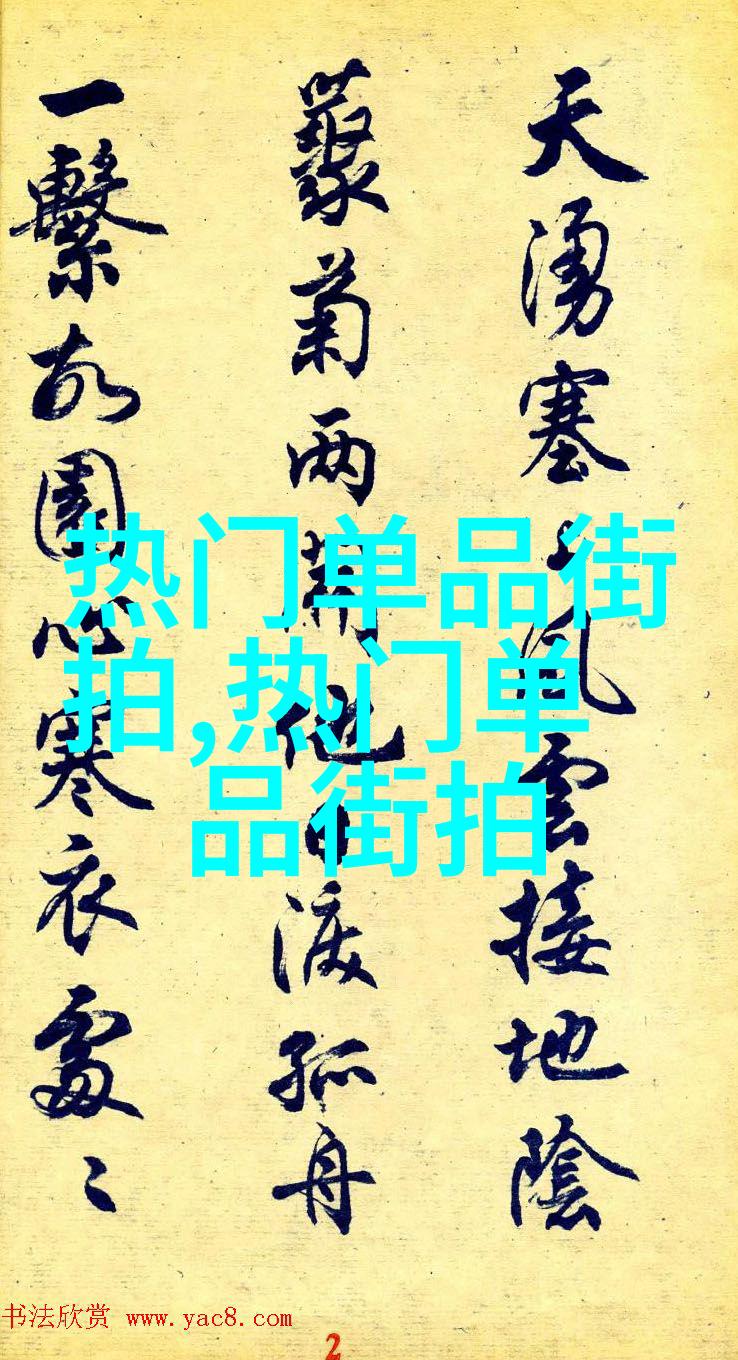 天湧塞上風雲接地陰
叢菊两開他日淚孤舟
一繫故園心寒衣處〻
热门单品街
拍,热门单
品街拍
书法欣赏 www.yac8.com
2